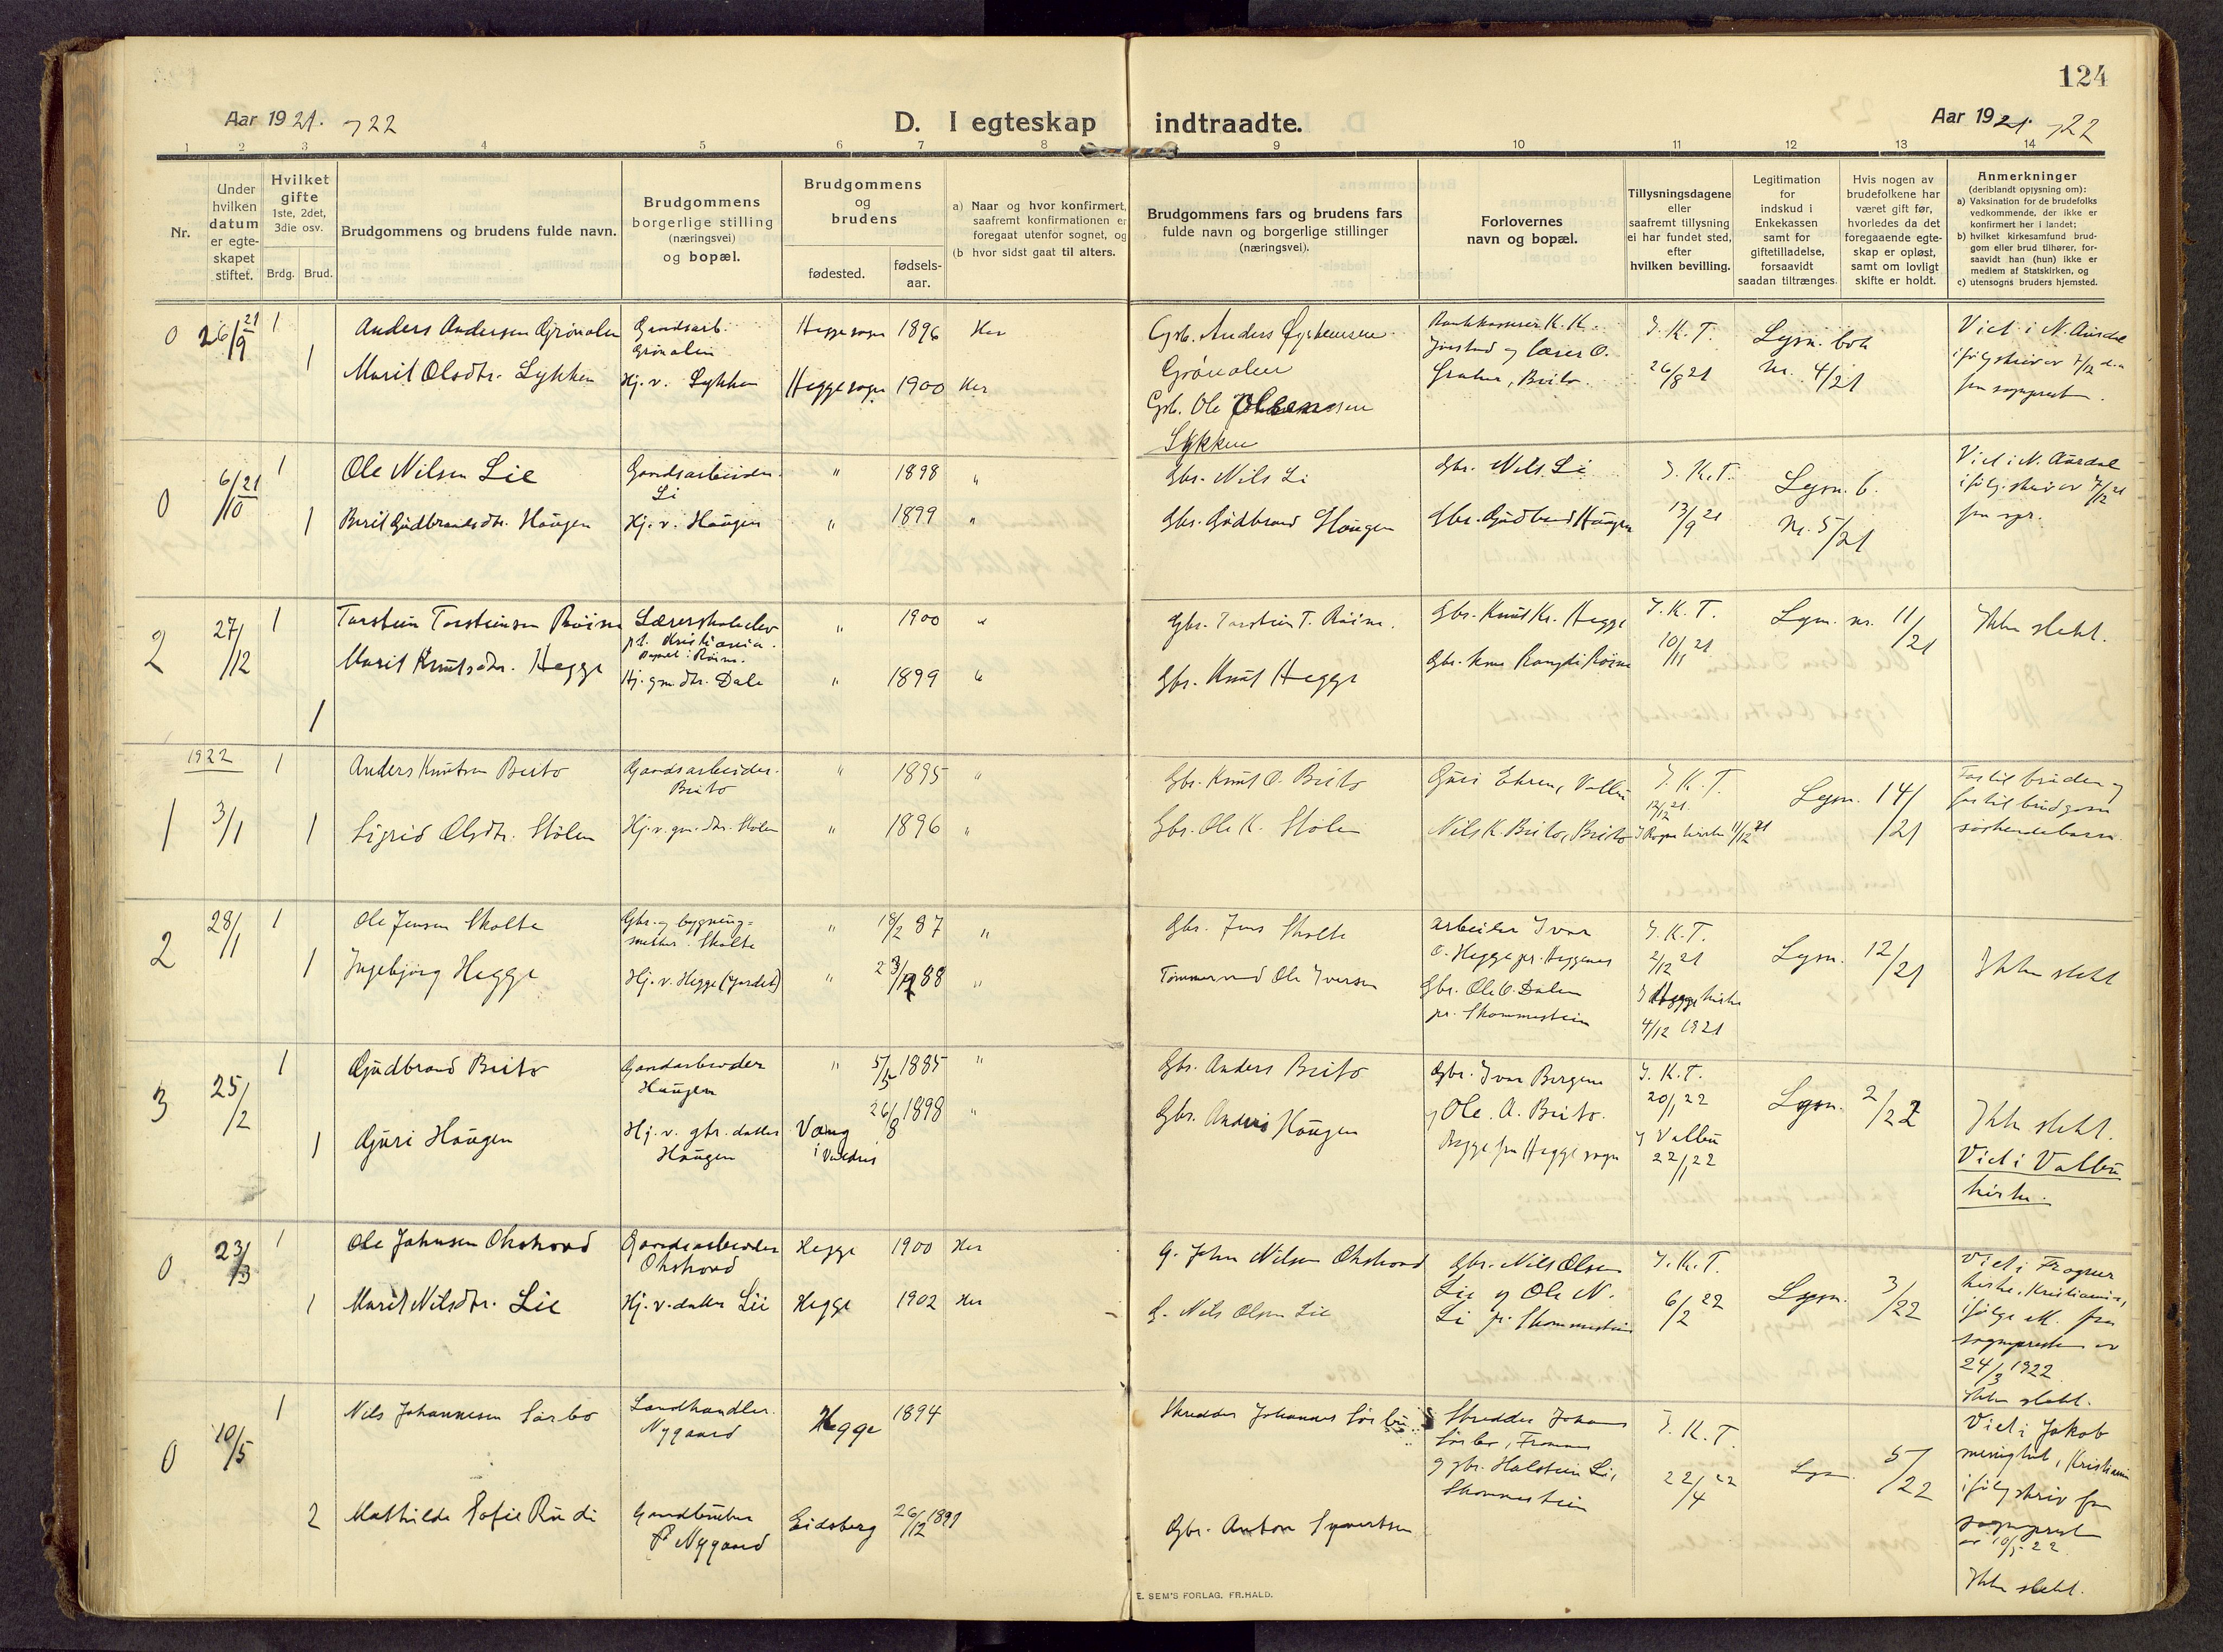 124
Aar 1921. 22
D. I egteskap indtraadte.
Aar 1921. 22
1 2 3 4 5 6 7 8 9 10 11 12 13 14
Nr.
Under hvilken datum er egte-skapet stiftet.
Hvilket gifte 1ste, 2det, 3die osv.
Brdg. Brud.
Brudgommens og brudens fulde navn.
Brudgommens borgerlige stilling (næringsvei) og bopæl.
Brudgommens og brudens
fødested.
fødsels-aar.
a) Naar og hvor konfirmert, saafremt konfirmationen er foregaat utenfor sognet, og
(b hvor sidst gaat til alters.
Brudgommens fars og brudens fars fulde navn og borgerlige stillinger (næringsvei).
Forlovernes navn og bopæl.
Tillysningsdagene eller saafremt tillysning ei har fundet sted, efter hvilken bevilling.
Legitimation for indskud i Enkekassen samt for giftetilladelse, forsaavidt saadan tiltrænges.
Hvis nogen av brudefolkene har været gift før, hvorledes da det foregaaende egte-skap er opløst, samt om lovligt skifte er holdt.
Anmerkninger
(deriblandt oplysning om):
a) Vaksination for de brudefolks vedkommende, der ikke er konfirmert her i landet;
b) hvilket kirkesamfund brud-gom eller brud tilhører, for-saavidt han (hun) ikke er medlem af Statskirken, og
c) utensogns bruders hjemsted.
0 26/9 21 1 Anders Andersen Grönolen Gaardsarb. Grönolen Heggesogn 1896 Her
1 Marit Olsdtr. Lykken Hj. v. Lykken Heggesogn 1900 Her
Grb. Anders Grönolen
Grb. Ole Lykken
lærer O. Beito.
J. K. T. 26/8 21
Lysn. bok nr. 4/21
Viet i N. Aurdal 7/12
0 6/10 21 1 Ole Nilsen Lie Gaardsarbeider. Li " 1898 "
1 Berit Gudbrandsdtr. Haugen Hj. v. Haugen " 1899 "
Gbr. Nils Li
Gbr. Gudbrand Haugen
Gbr. Nils Li
Gbr. Gudbrand Haugen
J. K. T. 13/9 21
Lysn. b. nr. 5/21
Viet i N. Aurdal
2 27/12 1 Torstein Torsteinsen Röine Lærerskoleelev p.t. Kristiania. " 1900 "
1 Marit Knutsdtr. Hegge Hj. gm. dtr. Dale " 1899 "
Gbr. Torstein T. Röine.
Gbr. Knut Hegge
Gbr. Knut Kr. Hegge
J. K. T. 10/11 21
Lysn. nr. 11/21
Ikke slekt.
1922
1 3/1 1 Anders Knutsen Beito Gaardsarbeider. Beito " 1895 "
1 Sigrid Olsdtr. Stölen Hj. v. gm. dtr. Stölen " 1896 "
Gbr. Knut O. Beito
Gbr. Ole K. Stölen
Nils K. Beito, Beito
J. K. T. 11/12 21
Lysn. 14/21
Far til bruden og far til brudgom søskendebarn
2 28/1 1 Ole Jensen Skolte Gbr. og bygning= Skolte " 18/2 87 "
1 Ingebjörg Hegge Hj. v. Hegge (Jordet) " 88 "
Gbr. Jens Skolte
Tömmermand Ole Iversen
arbeider Ivar O. Hegge pr. Heggenes
Gbr. Ole O. Dalen pr. Skammestein
J. K. T. 2/12 21
I Hegge kirke 4/12 1921
Lysn. 12/21
Ikke slekt
3 25/2 1 Gudbrand Beito Gaardarbeider Haugen " 1885 "
1 Guri Haugen Hj. v. gbr. datter Haugen Vang i Valdres 26/8 1898 "
Gbr. Anders Beito
Gbr. Anders Haugen
Gbr. Ivar Bergene
og Ole. A. Beito.
begge fra Hegge sogn
J. K. T. 20/1 22
I Volbu 22/1 22
Lysn. 2/22
Ikke slekt.
Viet i Volbu kirke.
0 23/3 1 Ole Johnsen Okshovd Gaardsarbeider Okshovd Hegge 1900 Her
1 Marit Nilsdtr. Lie Hj. v. datter Lii Hegge 1902 Her
G. John Nilsen Okshovd
G. Nils Olsen Lie
Gbr. Nils Olsen Lie og Ole N. Li pr. Skammestein
J. K. T. 6/2 22
Lysn. 3/22
Viet i Frogner kirke, Kristiania, ifölge att. fra sogneprest av 24/3 1922.
Ikke slekt.
0 10/5 1 Nils Johannesen Sørbo Landhandler. Nygaard Hegge 1894
2 Mathilde Sofie Rudi Nygaard Eidsberg 26/12 1891
Skredder Johannes Sørbo
Gbr. Anton Syvertsen
Skredder Johannes Sørbo,
og gbr. Halstein Li, Skammestein
J. K. T. 22/4 22
Lysn. 5/22
Viet i Jakob menighet, Kristiania ifölg skriv fra sogneprest av 10/5 22
Ikke slekt.
E. SEM'S FORLAG, FR.HALD.